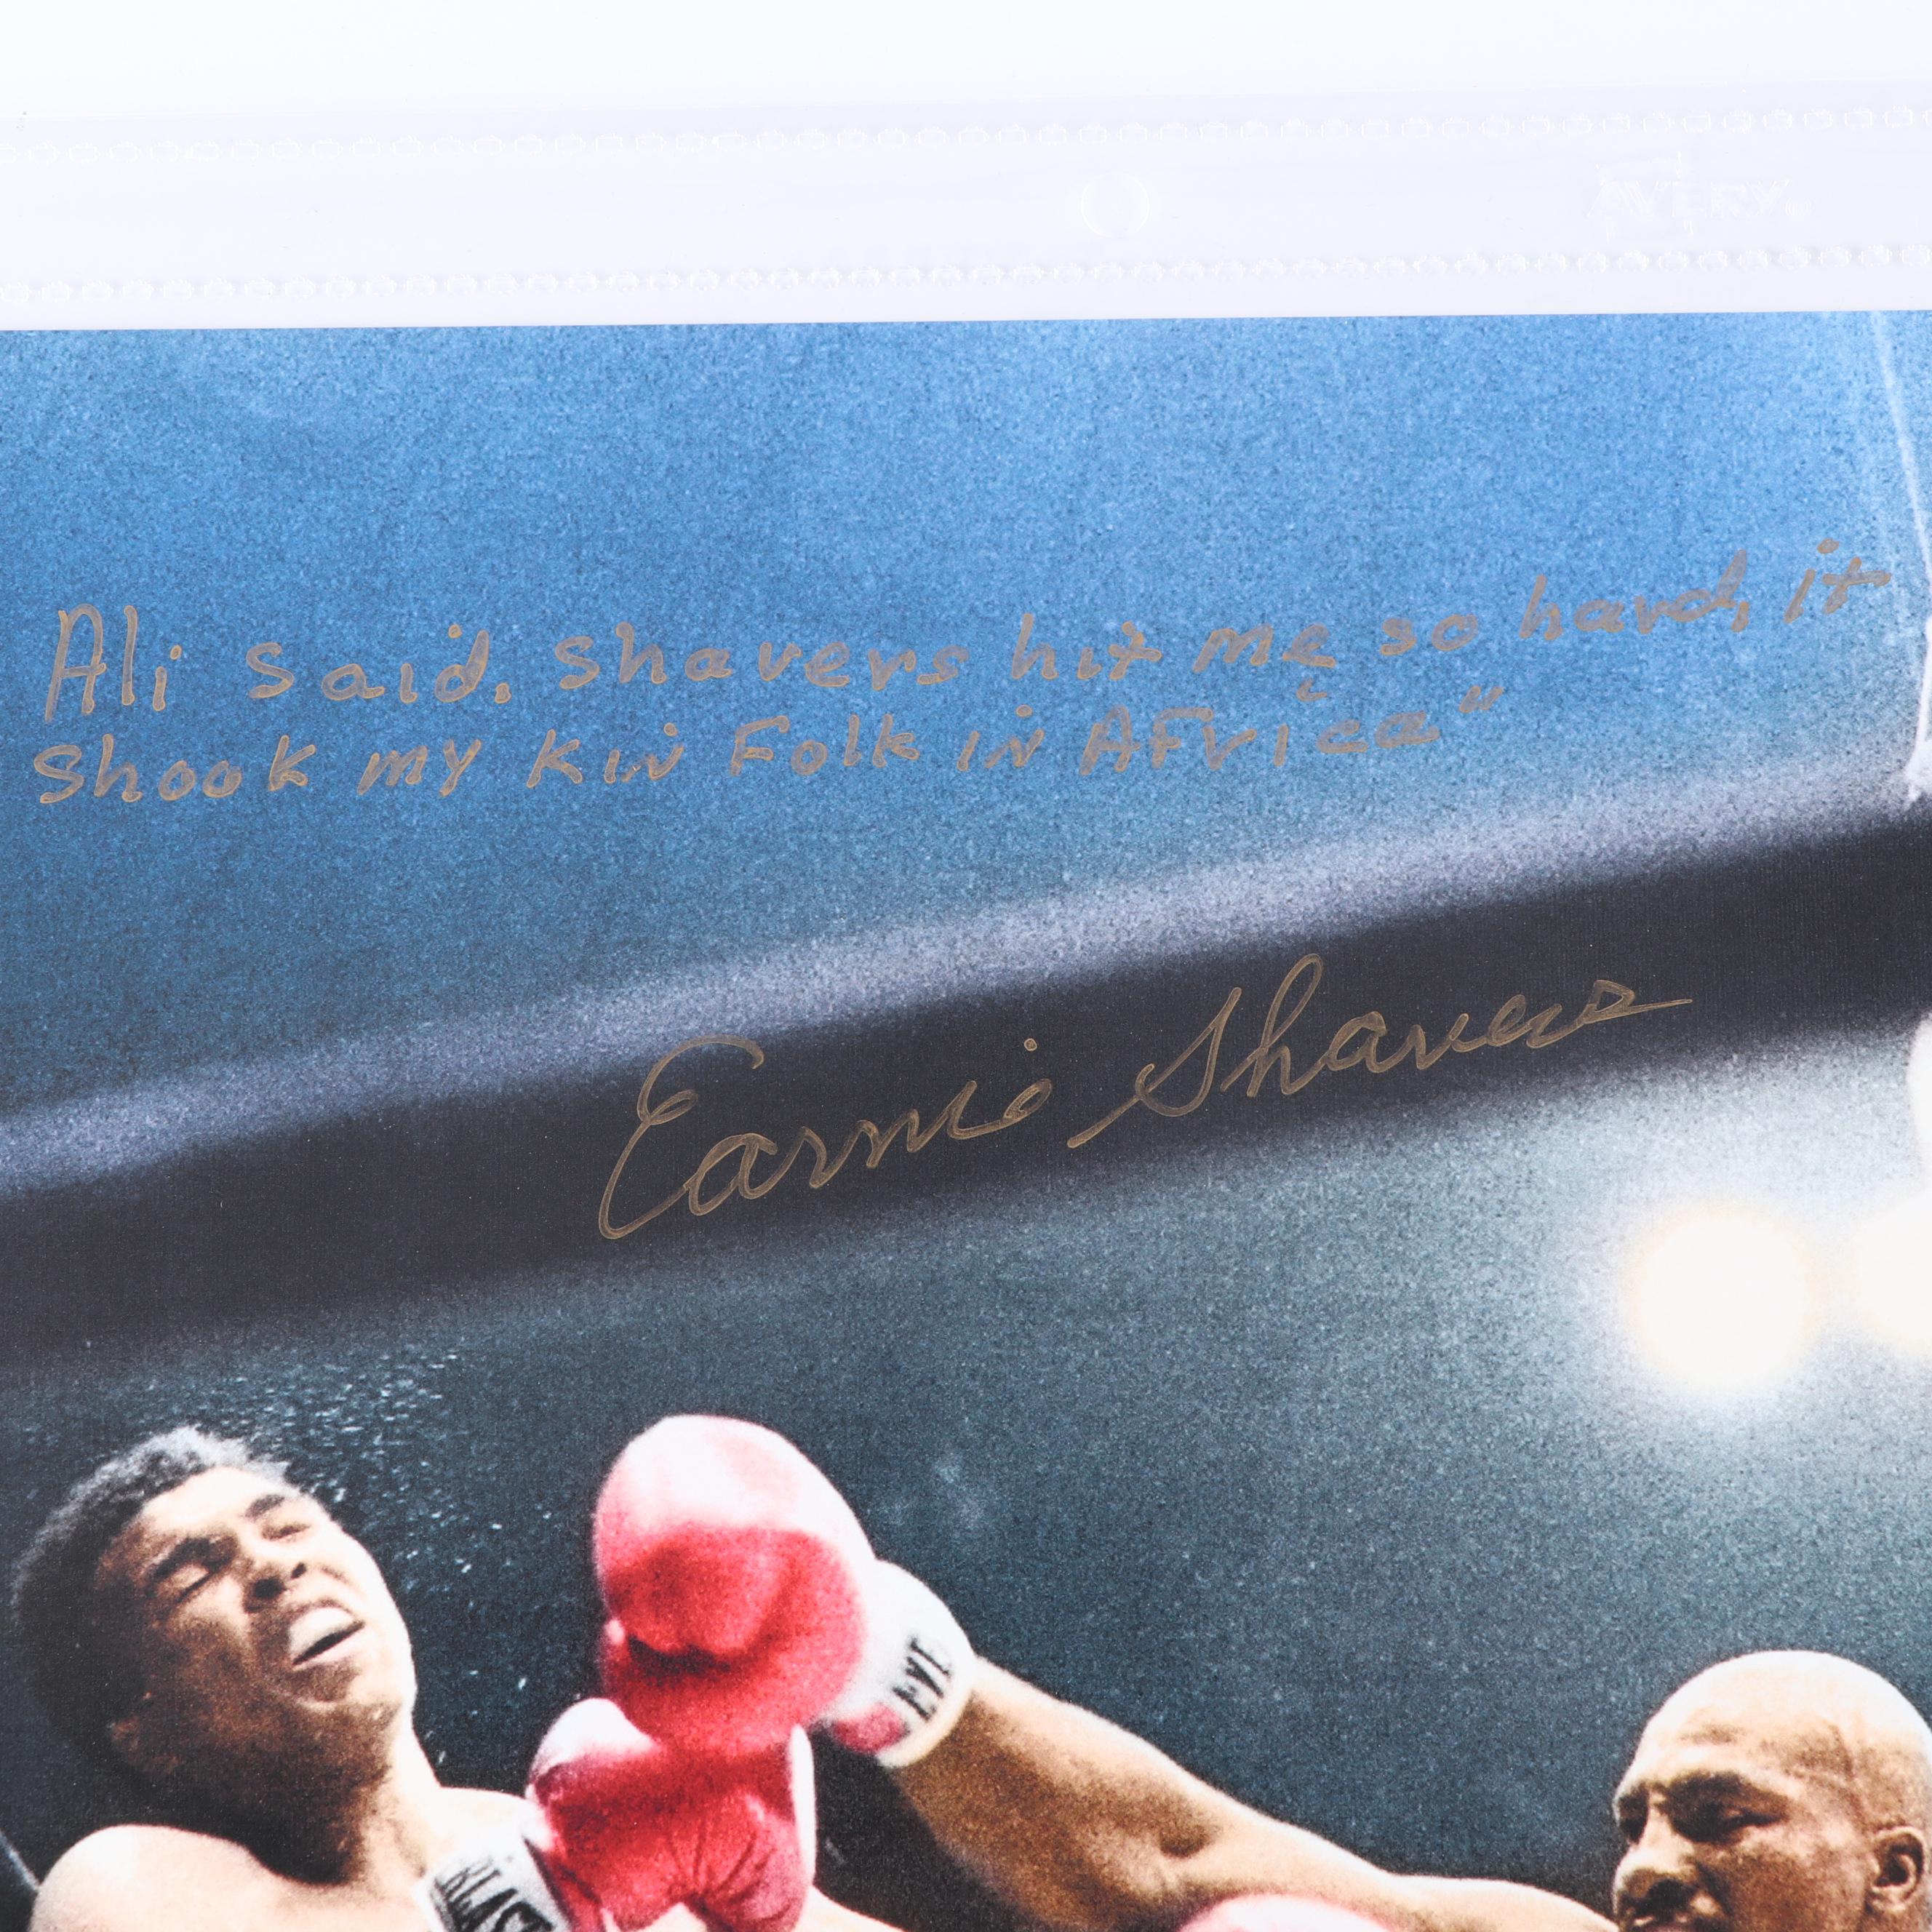 AVERY
Ali said. Shavers hit me so hard, it
Shook my kin Folk in AFrica"
Earnie Shavers